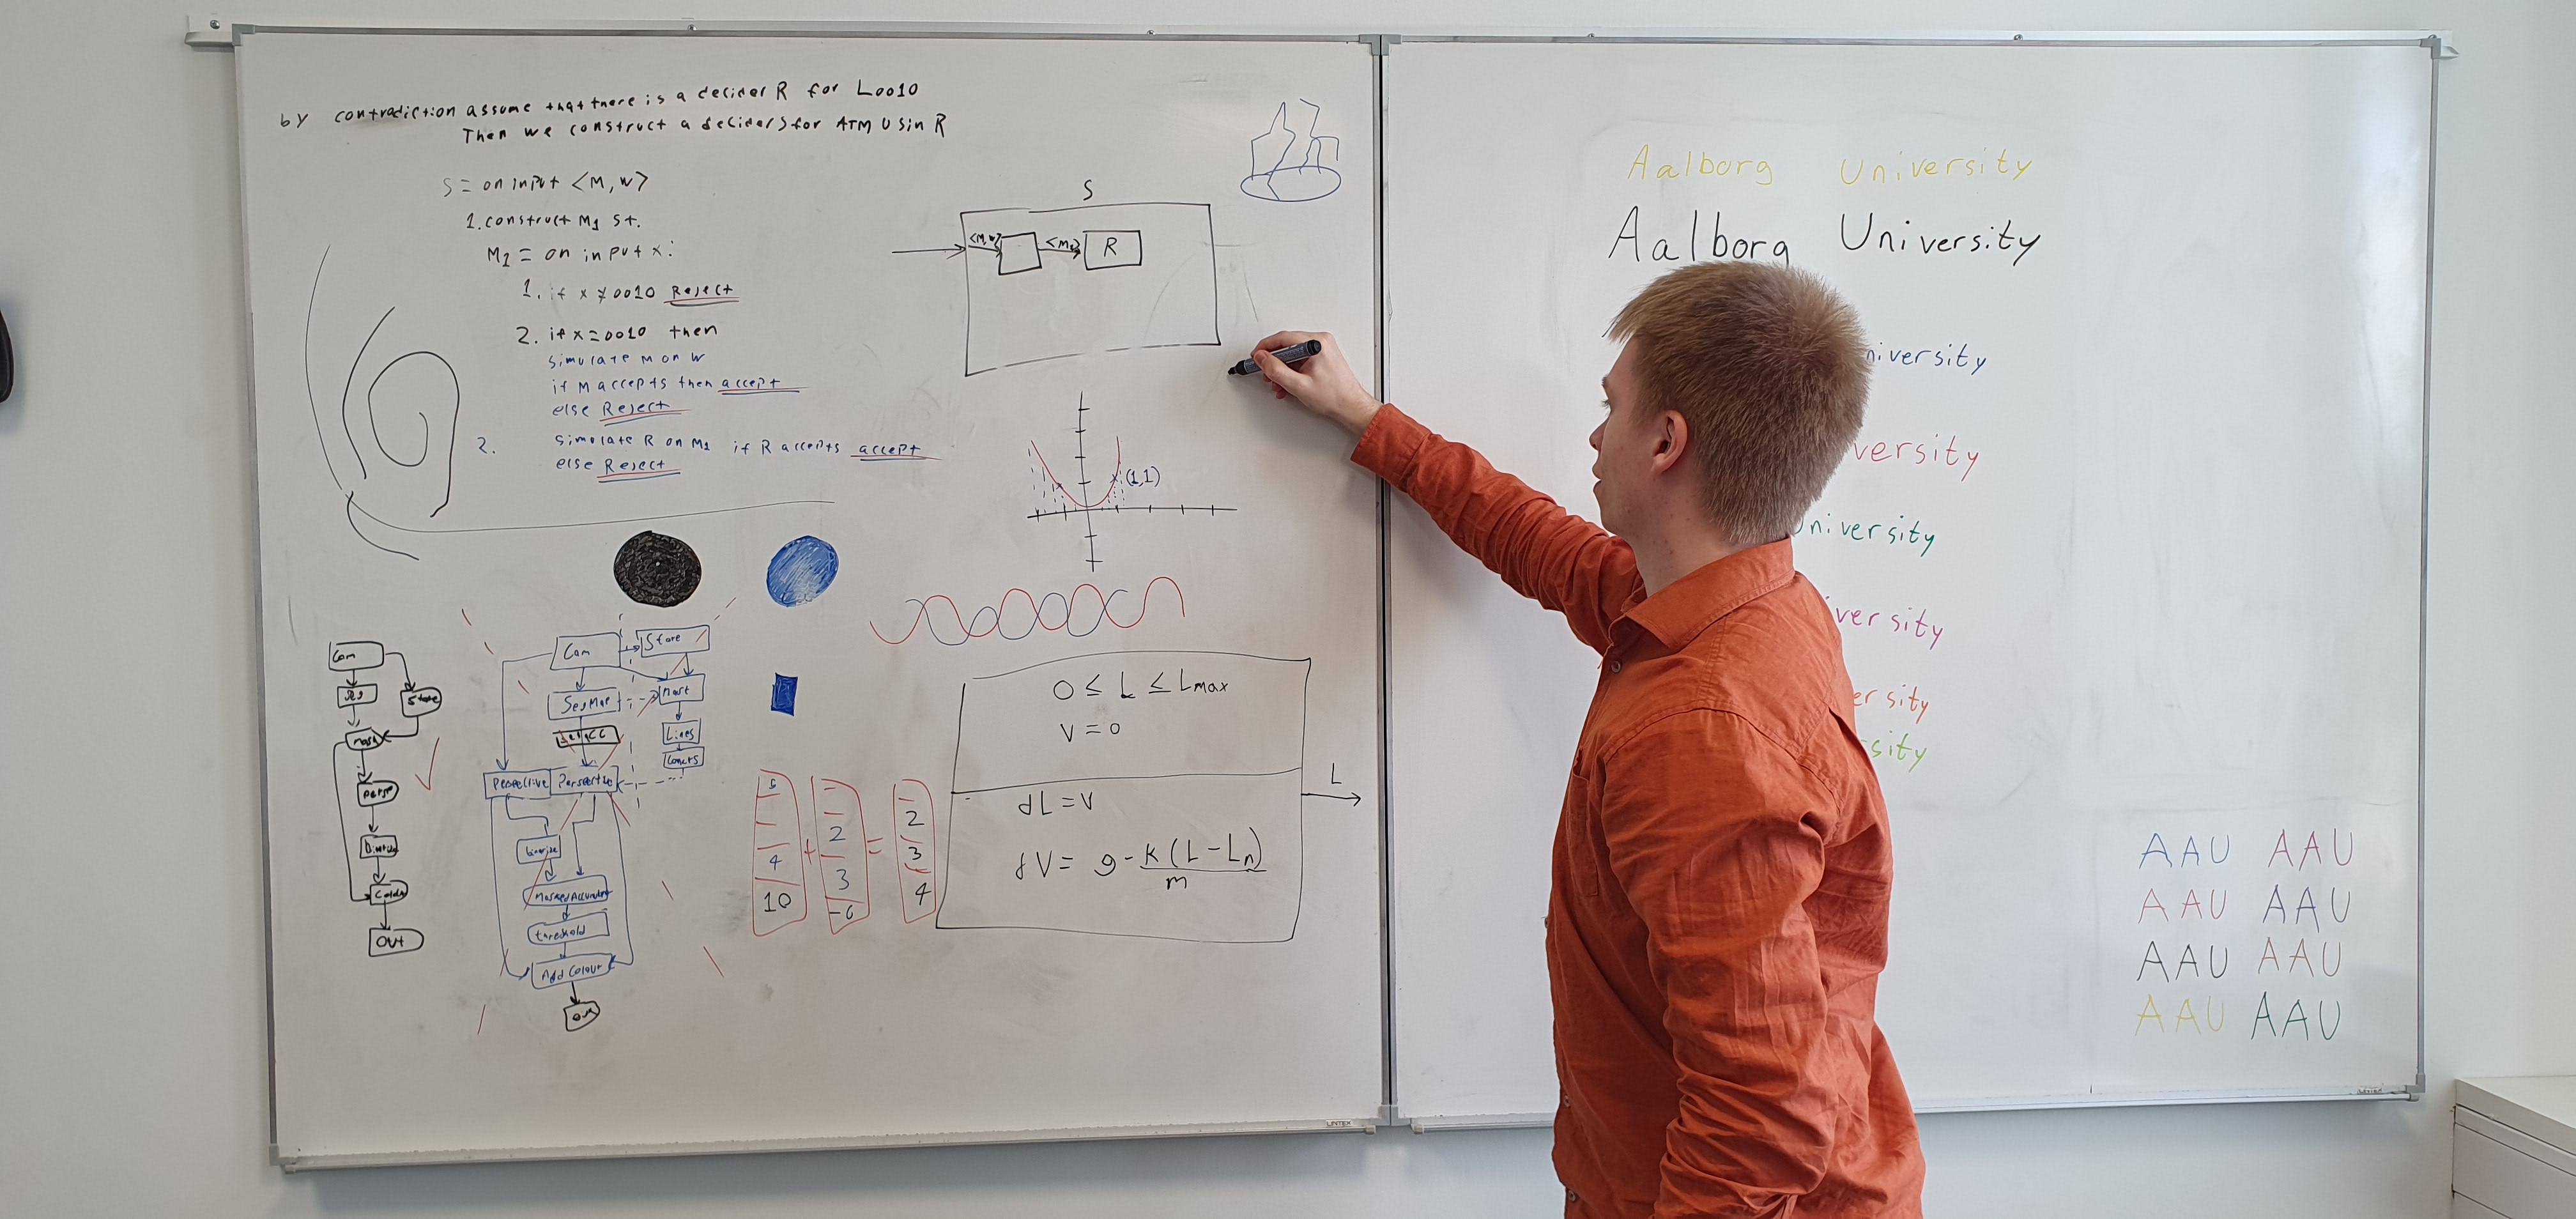 by contradiction assume that there is a decider R for L0010
Then we construct a decider S for ATM Usin R
S = on input <M, w>
1. construct M1 st.
M1 = on input x:
1. if x ≠ 0010 Reject
2. if x = 0010 then
simulate M on w
if M accepts then accept
else Reject
2. simulate R on M1 if R accepts accept
else Reject
S
<M, w>
<M1>
R
(1,1)
Cam
Seg
State
Mask
Persp
Out
Cam
Store
SegMap
Lines
Perspective
Perspective
Binarize
threshold
Add Colour
Out
5
4
10
+
2
3
-6
=
2
3
4
0 ≤ L ≤ Lmax
V = 0
dL = V
dV = g - k (L - Ln)
m
L
Aalborg University
Aalborg University
niversity
versity
University
versity
ersity
sity
AAU AAU
AAU AAU
AAU AAU
AAU AAU
LINTEX